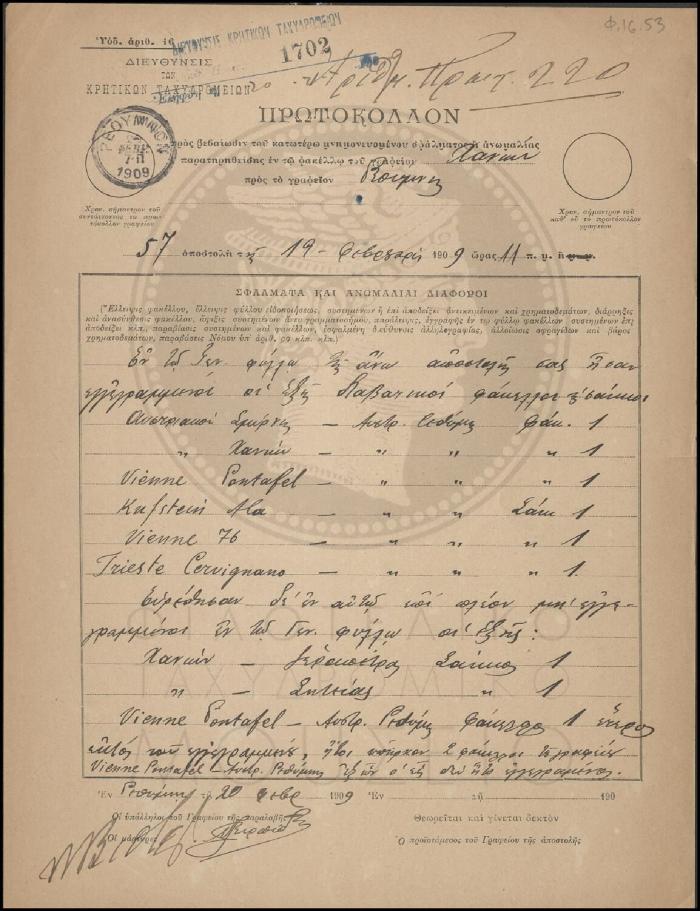 Ὑπόδ. ἀριθ. 16
ΔΙΕΥΘΥΝΣΙΣ ΚΡΗΤΙΚΩΝ ΤΑΧΥΔΡΟΜΕΙΩΝ
1702
Φ.16.53
ΔΙΕΥΘΥΝΣΙΣ
ΤΩΝ
ΚΡΗΤΙΚΩΝ ΤΑΧΥΔΡΟΜΕΙΩΝ
Ἀριθμ. Πρωτ. 220
ΠΡΩΤΟΚΟΛΛΟΝ
ΡΕΘΥΜΝΟΝ
1909
πρὸς βεβαίωσιν τοῦ κατωτέρω μνημονευομένου σφάλματος ἢ ἀνωμαλίας
παρατηρηθείσης ἐν τῷ φακέλλῳ τοῦ γραφείου Χανίων
πρὸς τὸ γραφεῖον Ρεθύμνης
Χρον. σήμαντρον τοῦ
συντάσσοντος τὸ πρω-
τόκολλον γραφείου
Χρον. σήμαντρον τοῦ
καθ' οὗ τὸ πρωτόκολλον
γραφείου
57 ἀποστολὴ τῆς 19 - Φεβρουαρίου 1909 ὥρας 11 π. μ. ἢ μ. μ.
ΣΦΑΛΜΑΤΑ ΚΑΙ ΑΝΩΜΑΛΙΑΙ ΔΙΑΦΟΡΟΙ
(Ἔλλειψις φακέλλου, ἔλλειψις φύλλου εἰδοποιήσεως, συστημένων ἢ ἐπὶ ἀποδείξει ἀντικειμένων καὶ χρηματοδεμάτων, διάρρηξες
καὶ ἀνασύνθεσις φακέλλου, ἄφιξις συστημένων ἄνευ γραμματοσήμου, παράλειψις, ἐγγραφῆς ἐν τῷ φύλλῳ φακέλλων συστημένων ἐπ'
ἀποδείξει κλπ., παραβίασις συστημένων καὶ φακέλλων, ἐσφαλμένη διεύθυνσις ἀλληλογραφίας, ἀλλοίωσις σφραγίδων καὶ βάρος
χρηματοδεμάτων, παραβάσεις Νόμου ὑπ' ἀριθ. 99 κλπ. κλπ.)
Ἐν τῷ Γεν. φύλλῳ τῆς ἄνω ἀποστολῆς σας ἦσαν
ἐγγεγραμμένοι οἱ ἑξῆς φάκελλοι καὶ σάκκοι
Αὐστριακοῦ Σμύρνης — Αὐστρ. Ρεθύμνης Φάκ. 1
„ Χανίων — „ „ „ 1
Vienne Pontafel — „ „ „ 1
Kufstein Ala — „ „ Σάκ 1
Vienne 76 — „ „ „ 1
Trieste Cervignano — „ „ „ 1
Εὑρέθησαν δὲ ἐν αὐτῷ ἐπὶ πλέον μὴ ἐγγε-
γραμμένοι ἐν τῷ Γεν. φύλλῳ οἱ ἑξῆς:
Χανίων — Ἱεράπετρας Σάκκος 1
„ — Σητείας „ 1
Vienne Pontafel — Αὐστρ. Ρεθύμνης φάκελλος 1 ἕτερος
ἐκτὸς τοῦ ἐγγεγραμμένου, ἤτοι ὑπῆρχον 2 φάκελλοι τοῦ γραφείου
Vienne Pontafel — Αὐστρ. Ρεθύμνης ἐξ ὧν ὁ εἷς δὲν ἦτο ἐγγεγραμμένος.
Ἐν Ρεθύμνῃ τῇ 20 Φεβρ 1909 Ἐν τῇ 190
Οἱ ὑπάλληλοι τοῦ Γραφείου τῆς παραλαβῆς
Οἱ μάρτυρες
Θεωρεῖται καὶ γίνεται δεκτὸν
Ὁ προϊστάμενος τοῦ Γραφείου τῆς ἀποστολῆς
ΤΑΧΥΔΡΟΜΙΚΟ
ΜΟΥΣΕΙΟ